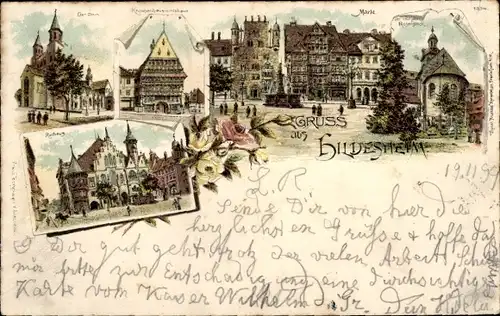 Der Dom.
Knochenhaueramtshaus
Markt
Rathaus
GRUSS
aus
HILDESHEIM
19.11.99
L. R.
Sende Dir von hier die
herzlichsten Grüße & hoffe daß
es Dir gut geht trotz der vielen Arbeit
mir bitte zur Entschädigung eine durchsichtige
Karte vom Kaiser Wilhelm Dein